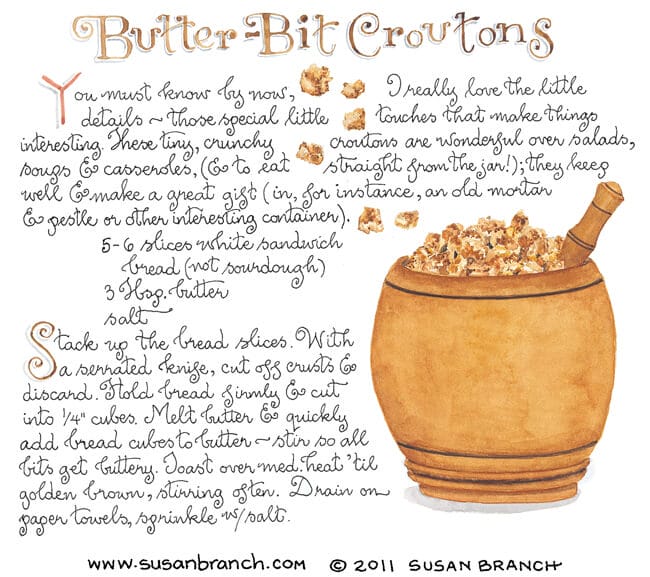 Butter-Bit Croutons
You must know by now, I really love the little
details ~ those special little touches that make things
interesting. These tiny, crunchy croutons are wonderful over salads,
soups & casseroles, (& to eat straight from the jar!); they keep
well & make a great gift (in, for instance, an old mortar
& pestle or other interesting container).
5-6 slices white sandwich
bread (not sourdough)
3 Tbsp. butter
salt
Stack up the bread slices. With
a serrated knife, cut off crusts &
discard. Hold bread firmly & cut
into 1/4" cubes. Melt butter & quickly
add bread cubes to butter ~ stir so all
bits get buttery. Toast over med. heat 'til
golden brown, stirring often. Drain on
paper towels, sprinkle w/salt.
www.susanbranch.com © 2011 SUSAN BRANCH